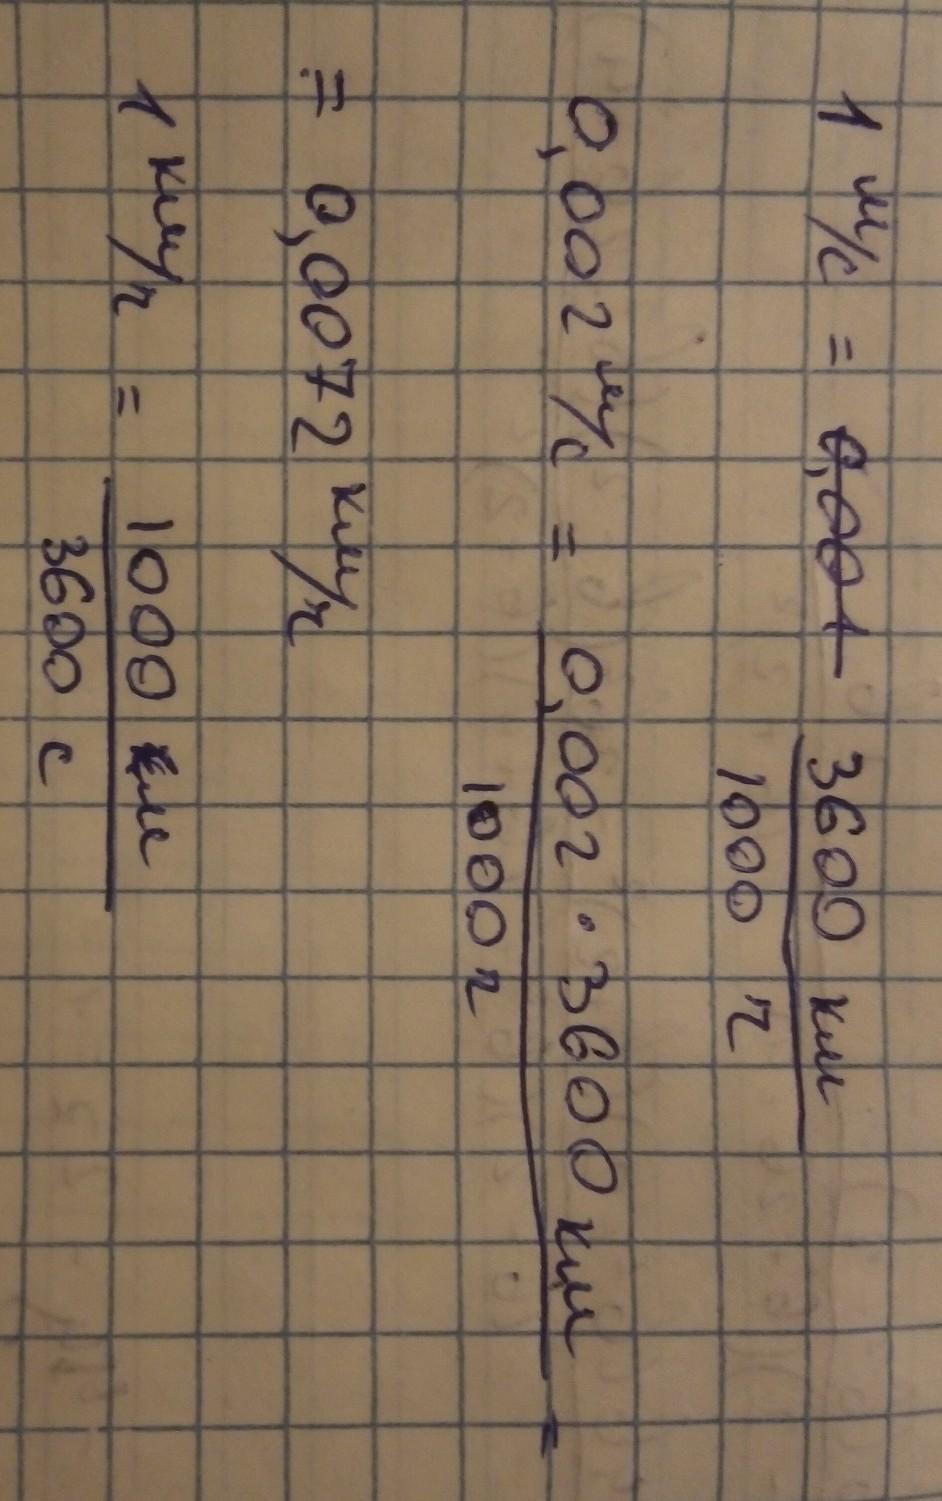 1 м/с = 0,001 3600 км
1000 ч
0,002 м/с = 0,002 · 3600 км =
1000 ч
= 0,0072 км/ч
1 км/ч = 1000 м
3600 с